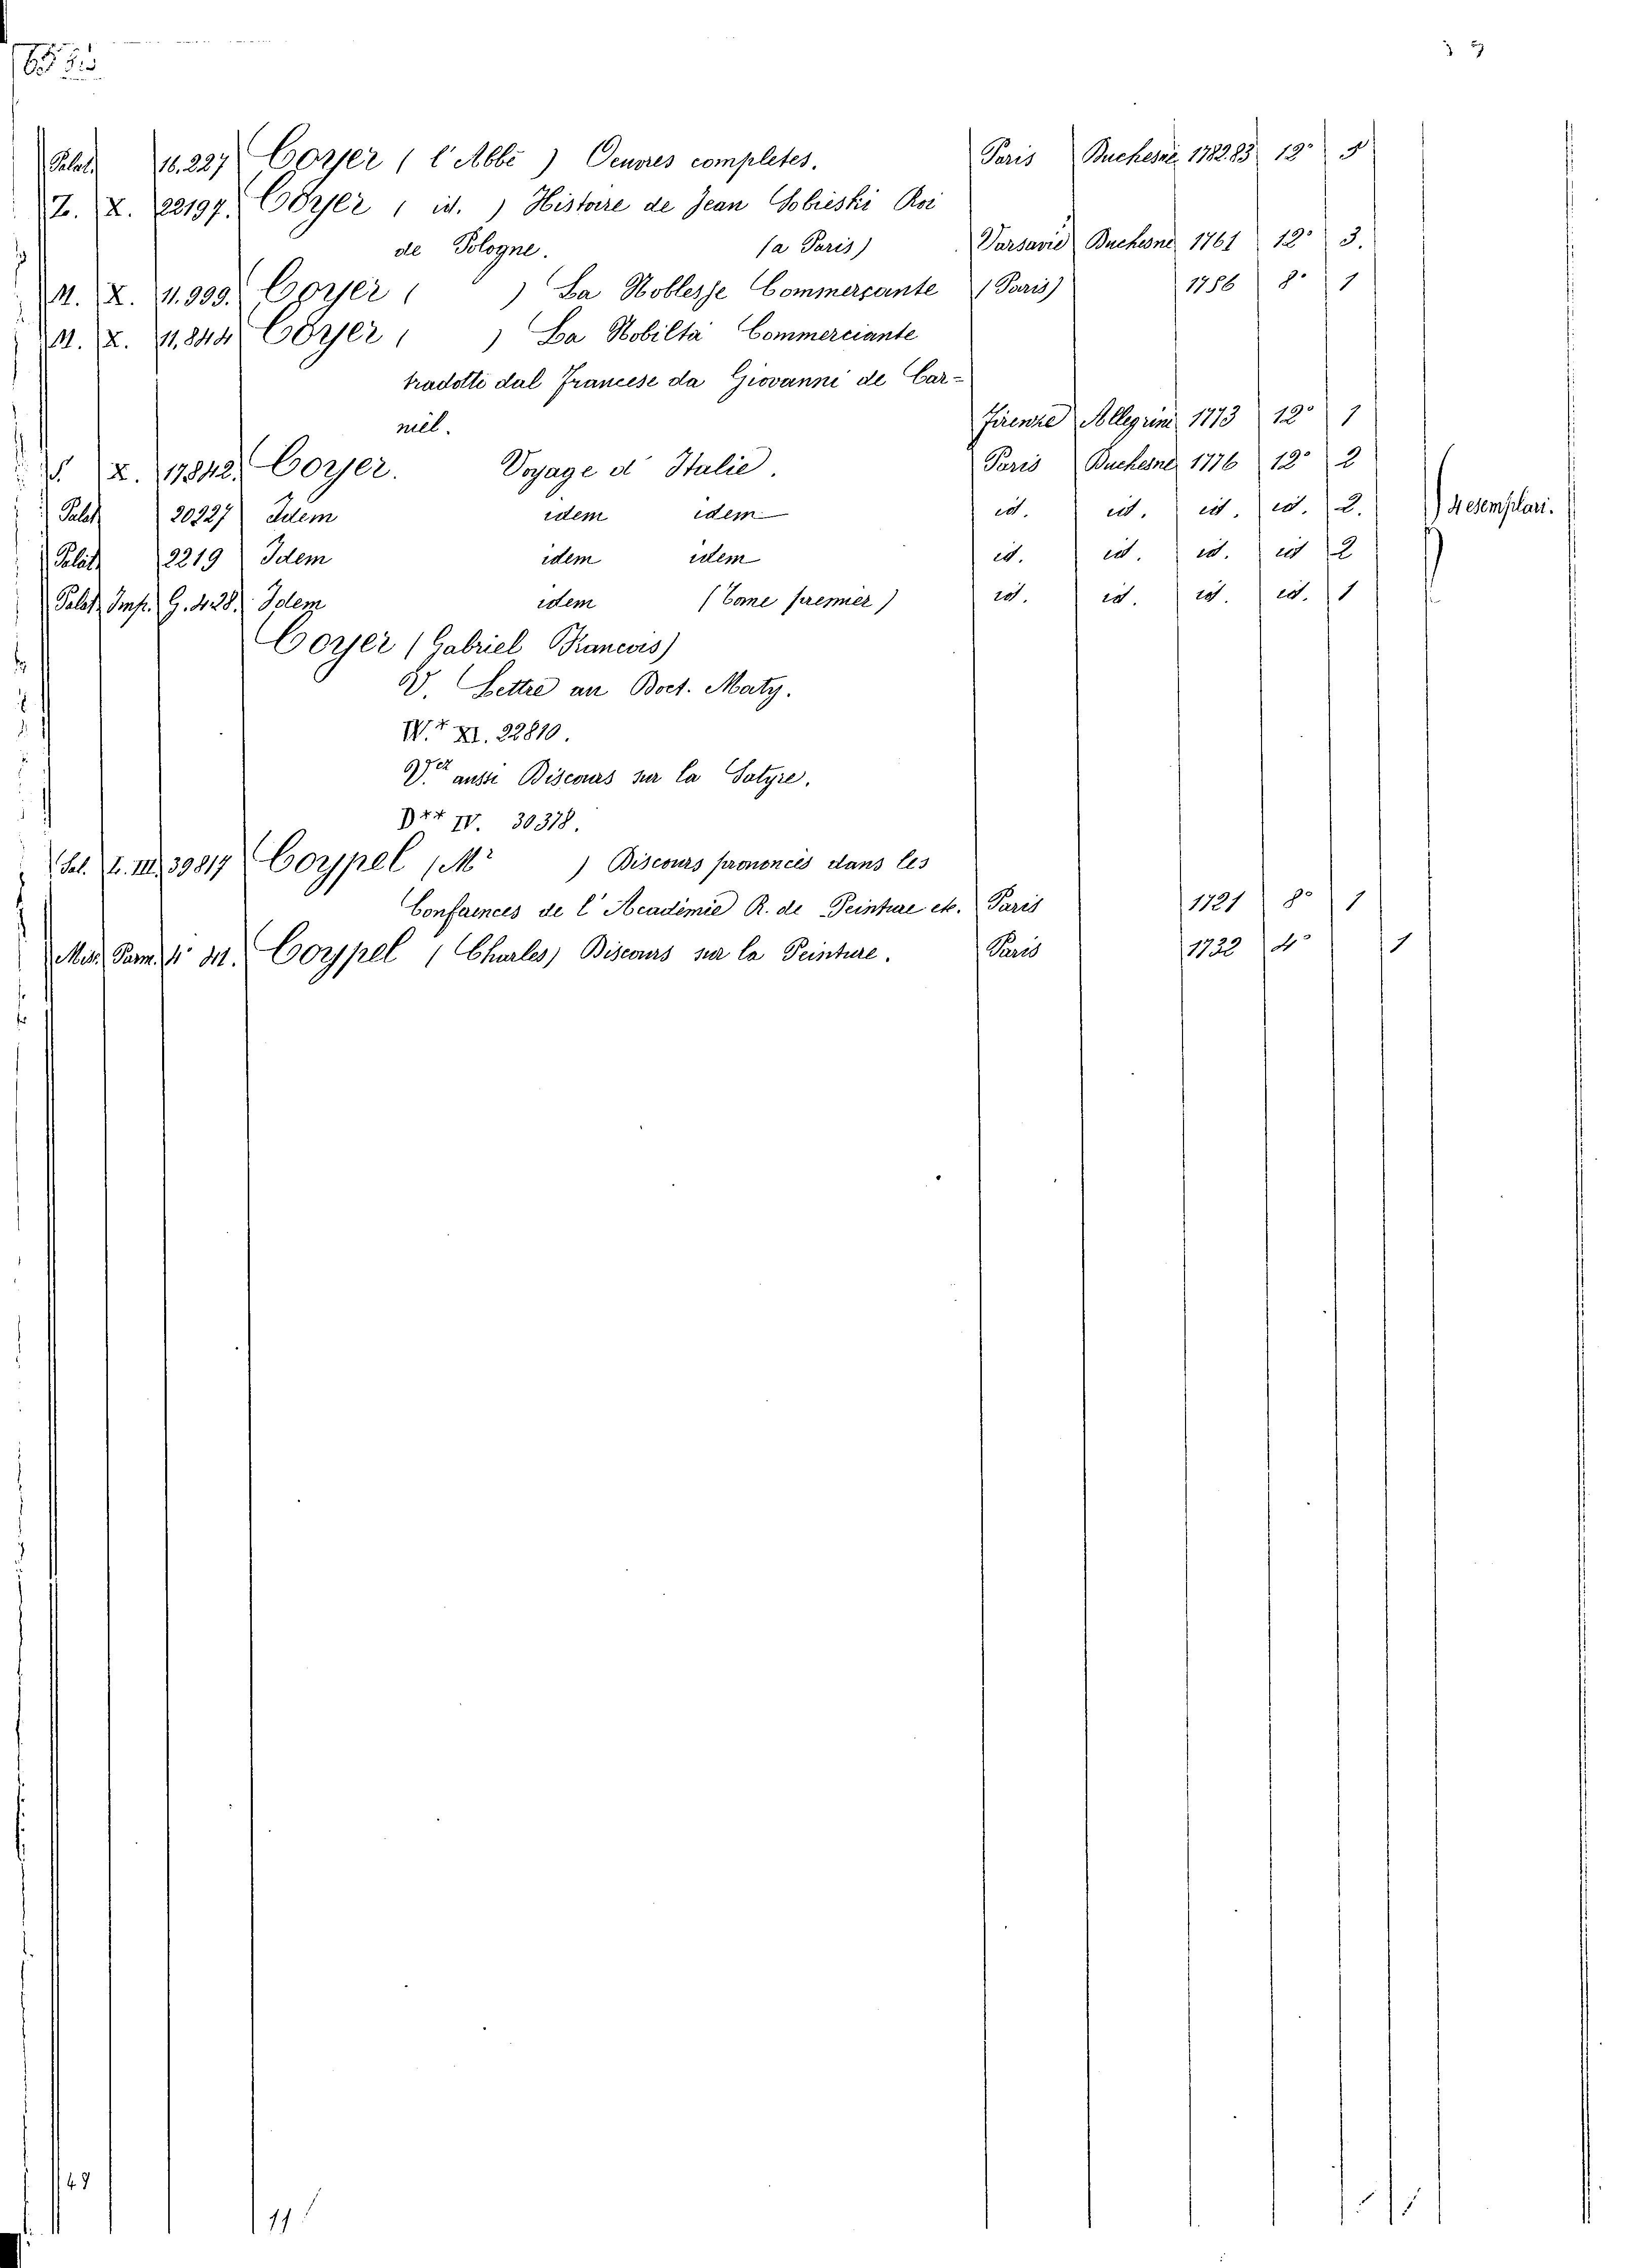 Palat. 16.227 Coyer ( l'Abbé ) Oeuvres completes. Paris Duchesne 1782.83 12° 5
Z. X. 22197. Coyer ( id. ) Histoire de Jean Sobieski Roi
de Pologne. (a Paris) Varsavie Duchesne 1761 12° 3.
M. X. 11.999. Coyer ( ) La Noblesse Commerçante (Paris) 1756 8° 1
M. X. 11.844 Coyer ( ) La Nobiltà Commerciante
tradotti dal Francese da Giovanni de Car-
mel. Firenze Allegrini 1773 12° 1
X. 17842. Coyer. Voyage d'Italie. Paris Duchesne 1776 12° 2
Palat. 20227 Idem idem idem id. id. id. id. 2. 4 esemplari.
Palat. 2219 Idem idem idem id. id. id. id 2
Palat. Imp. G. 428. Idem idem (Tome premier) id. id. id. id. 1
Coyer (Gabriel Francois)
V. Lettre au Doct. Maty.
W.* XI. 22810.
V.et aussi Discours sur la Satyre.
D** IV. 30378.
Pal. L. III. 39817 Coypel (Mr ) Discours prononcés dans les
Conférences de l'Académie R. de Peinture etc. Paris 1721 8° 1
Parm. Coypel (Charles) Discours sur la Peinture. Paris 1732 4° 1
49
11